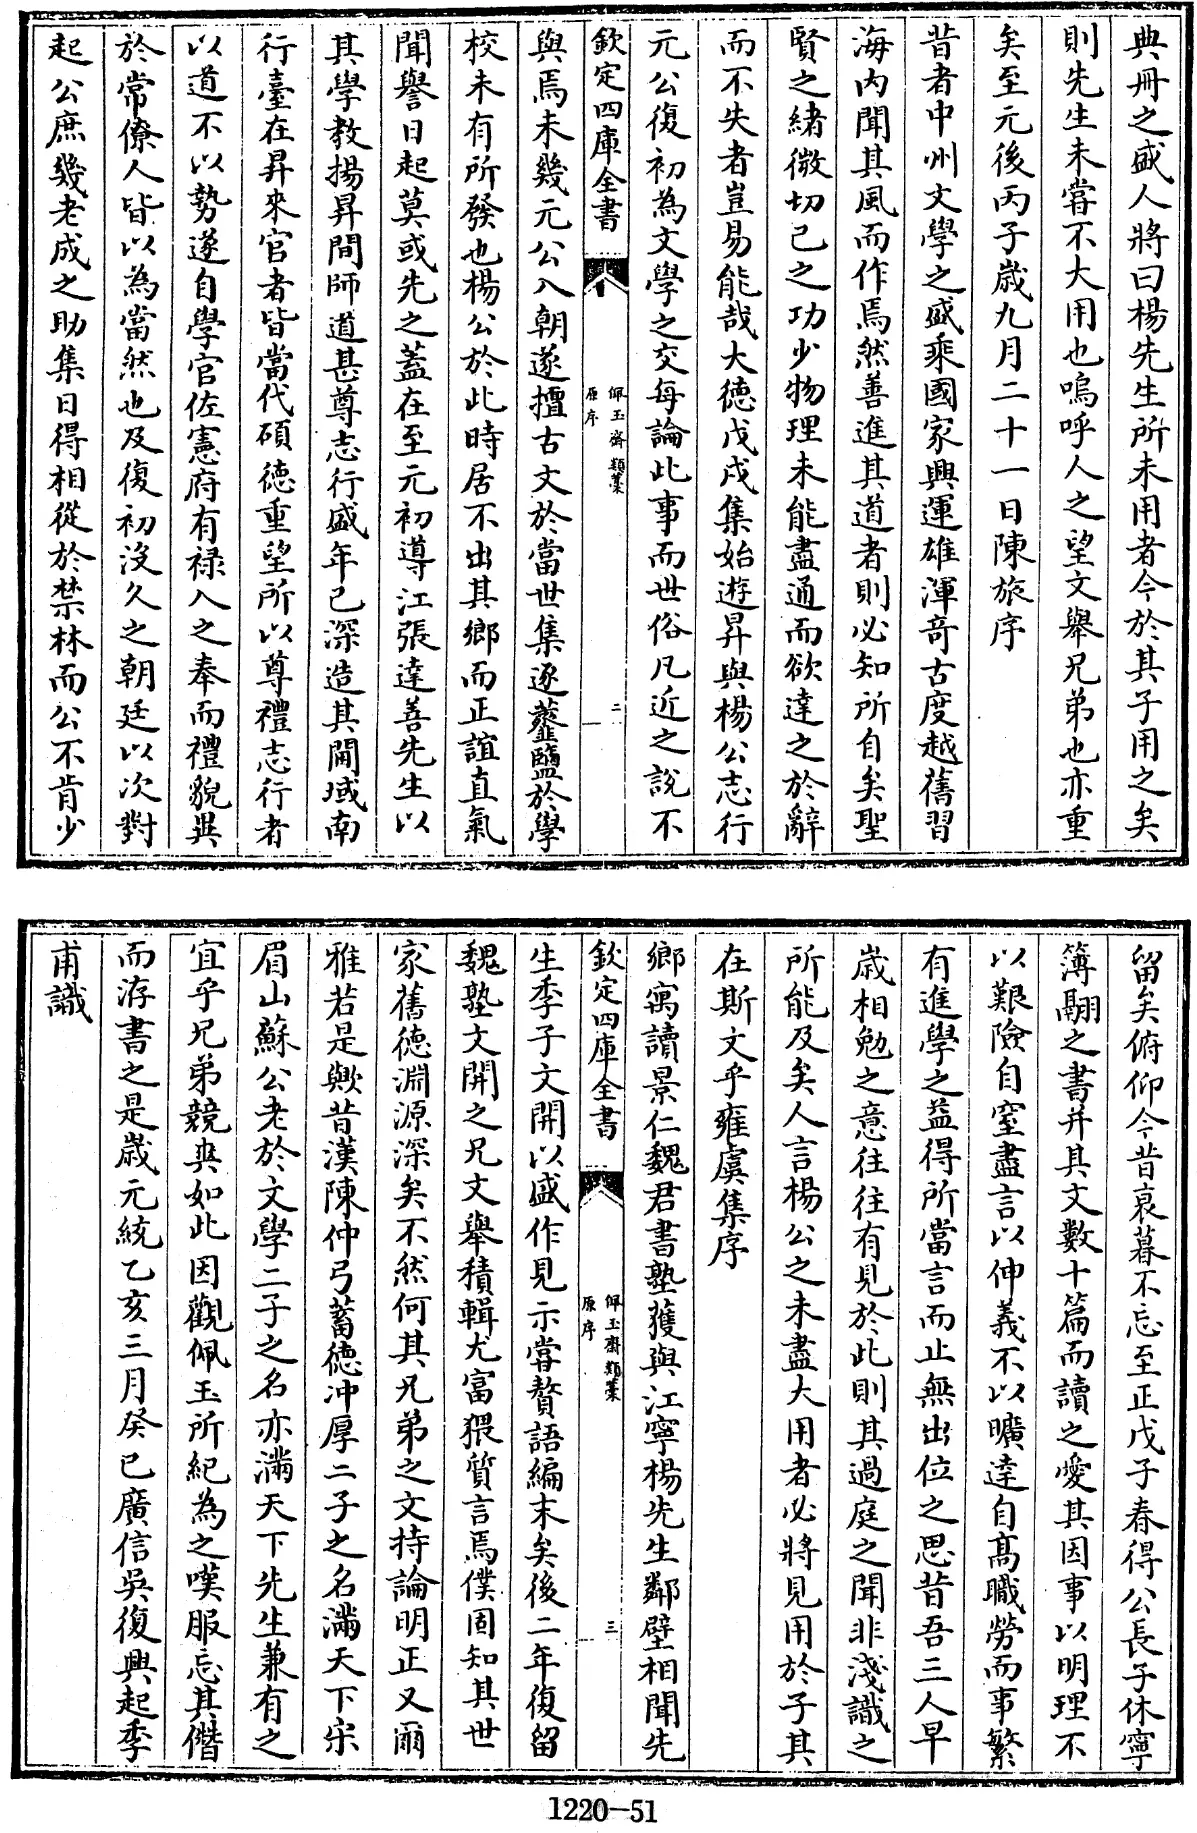 典冊之盛人將曰楊先生所未用者今於其子用之矣
則先生未嘗不大用也嗚呼人之望文舉兄弟也亦重
矣至元後丙子歲九月二十一日陳旅序
昔者中州文學之盛乘國家興運雄渾奇古度越舊習
海内聞其風而作焉然善進其道者則必知所自矣聖
賢之緒微切己之功少物理未能盡通而欲達之於辭
而不失者豈易能哉大德戊戌集始遊昇與楊公志行
元公復初為文學之交每論此事而世俗凡近之說不
欽定四庫全書
佩玉齋類藁
原序
二
與焉未幾元公入朝遂擅古文於當世集逐虀鹽於學
校未有所發也楊公於此時居不出其鄉而正誼直氣
聞譽日起莫或先之蓋在至元初導江張達善先生以
其學教揚昇間師道甚尊志行盛年已深造其閫域南
行臺在昇來官者皆當代碩德重望所以尊禮志行者
以道不以勢遂自學官佐憲府有禄入之奉而禮貌異
於常僚人皆以為當然也及復初沒久之朝廷以次對
起公庶幾老成之助集日得相從於禁林而公不肯少
留矣俯仰今昔哀暮不忘至正戊子春得公長子休寧
簿翮之書并其文數十篇而讀之愛其因事以明理不
以艱險自窒盡言以伸義不以曠達自高職勞而事繁
有進學之益得所當言而止無出位之思昔吾三人早
歲相勉之意往往有見於此則其過庭之聞非淺識之
所能及矣人言楊公之未盡大用者必將見用於子其
在斯文乎雍虞集序
鄉寓讀景仁魏君書塾獲與江寧楊先生鄰壁相聞先
欽定四庫全書
佩玉齋類藁
原序
三
生季子文開以盛作見示嘗贅語編末矣後二年復留
魏塾文開之兄文舉積輯尤富猥質言焉僕固知其世
家舊德淵源深矣不然何其兄弟之文持論明正又爾
雅若是歟昔漢陳仲弓蓄德沖厚二子之名滿天下宋
眉山蘇公老於文學二子之名亦滿天下先生兼有之
宜乎兄弟競爽如此因觀佩玉所紀為之嘆服忘其僭
而洊書之是歲元統乙亥三月癸巳廣信吳復興起季
甫識
1220—51